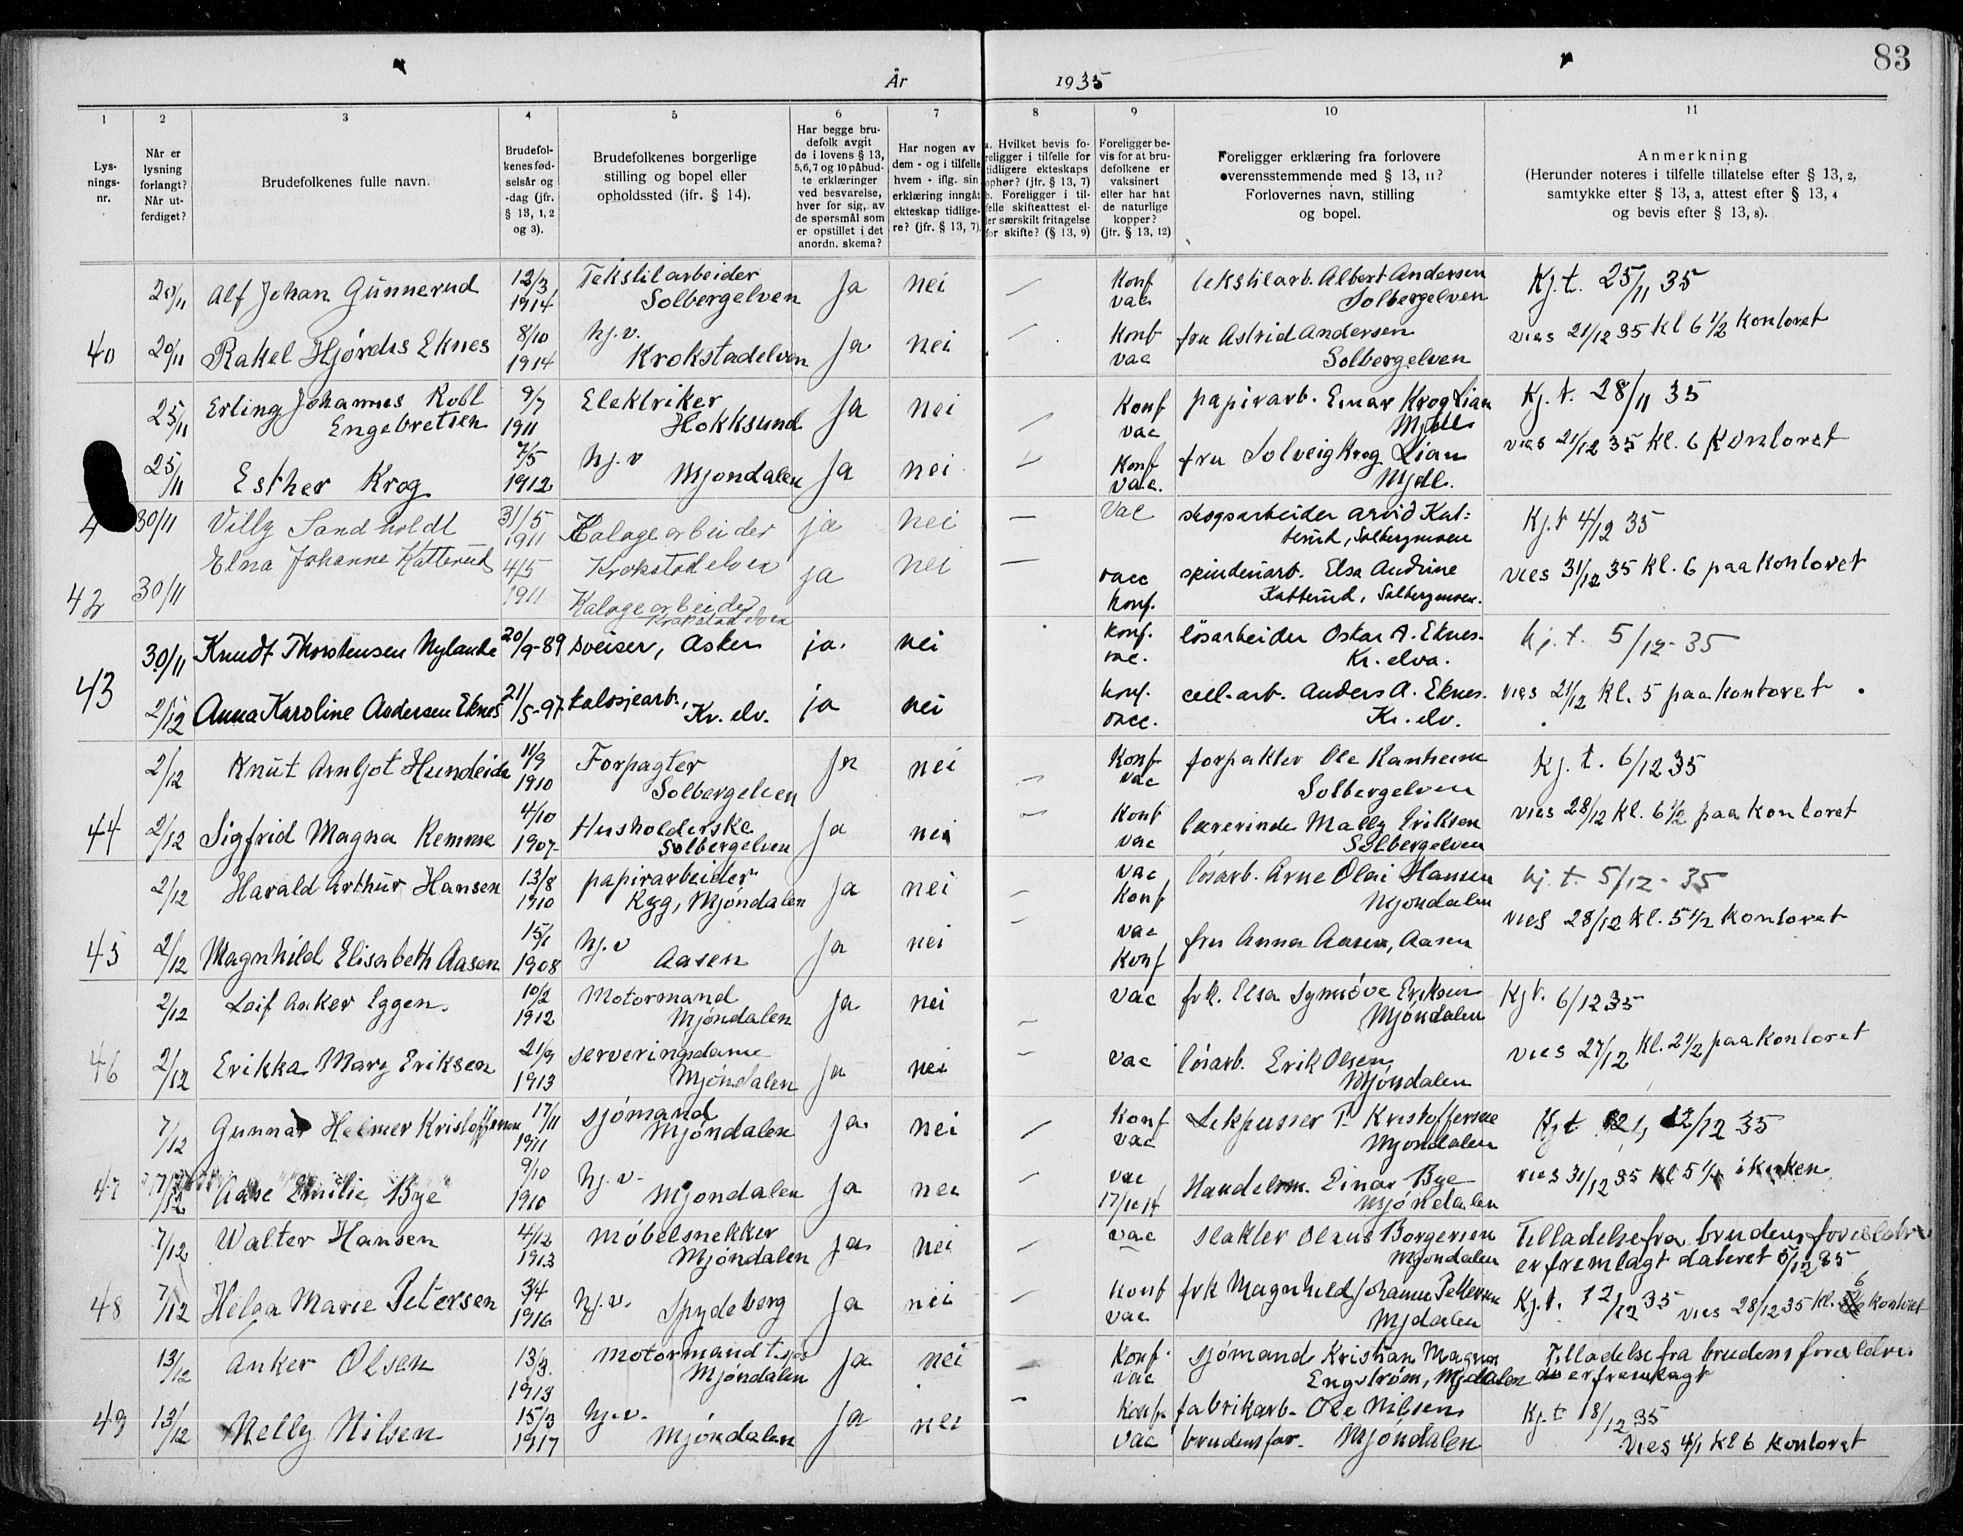 83
År 1935
1 2 3 4 5 6 7 8 9 10 11
Lys-
nings-
nr.
Når er
lysning
forlangt?
Når ut-
ferdiget?
Brudefolkenes fulle navn.
Brudefol-
kenes fød-
selsår og
-dag (jfr.
§ 13, 1, 2
og 3).
Brudefolkenes borgerlige
stilling og bopel eller
opholdssted (jfr. § 14).
Har begge bru-
defolk avgit
de i lovens § 13,
5,6,7 og 10 påbud-
te erklæringer
ved besvarelse,
hver for sig, av
de spørsmål som
er opstillet i det
anordn. skema?
Har nogen av
dem - og i tilfelle
hvem - iflg. sin
erklæring inngått
ekteskap tidlige-
re? (jfr. § 13, 7).
a. Hvilket bevis fo-
religger i tilfelle for
tidligere ekteskaps
ophør? (jfr. § 13, 7)
b. Foreligger i til-
felle skifteattest el-
ler særskilt fritagelse
for skifte? (§ 13, 9)
Foreligger be-
vis for at bru-
defolkene er
vaksinert
eller har hat
de naturlige
kopper?
(jfr. § 13, 12)
Foreligger erklæring fra forlovere
overensstemmende med § 13, 11?
Forlovernes navn, stilling
og bopel.
Anmerkning
(Herunder noteres i tilfelle tillatelse efter § 13, 2,
samtykke efter § 13, 3, attest efter § 13, 4
og bevis efter § 13, 8).
20/11 Alf Johan Gunnerud 12/3 1914 Tekstilarbeider Solbergelven Ja nei — Konf vac tekstilarb. Albert Andersen Solbergelven Kj.t. 25/11 35
40 20/11 Rakel Hjørdis Eknes 8/10 1914 hj.v. Krokstadelven Ja nei — Konf vac fru Astrid Andersen Solbergelven vies 21/12 35 kl 6 1/2 kontoret
25/11 Erling Johannes Robl Engebretsen 9/7 1911 Elektriker Hokksund Ja nei — Konf vac papirarb. Einar Krog Lian Mjdl. Kj.t. 28/11 35
25/11 Esther Krog 7/5 1912 hj.v Mjøndalen Ja nei — Konf vac. fru Solveig Krog Lian Mjdl. vies 21/12 35 kl. 6 Kontoret
4 30/11 Villy Sandholdt 31/5 1911 Kalagearbeider ja nei — Vac skogsarbeider Arvid Kat=
terud, Solbergmoen Kj.t 4/12 35
42 30/11 Elna Johanne Katterud 4/5 1911 Krokstadelven Kalagearbeider Krokstadelven ja nei — vacc konf. spinderiarb. Elsa Andrine Katterud, Solbergmoen. vies 31/12 35 kl. 6 paa kontoret
30/11 Knudt Thorstensen Nylande 20/9-89 sveiser, Asker ja. nei konf. vac. løsarbeider Oskar A. Eknes. Kr. elva. kj.t. 5/12-35
43 2/12 Anna Karoline Andersen Eknes 21/5-97 kalosjearb., Kr. elv. ja nei konf. vacc. cell-arb. Anders A. Eknes. Kr. elv. vies 21/12 kl. 5 paa kontoret
2/12 Knut Arnljot Hundeide 11/9 1910 Forpagter Solbergelven Ja nei — Konf vac forpakter Ole Ranheim Solbergelven Kj.t. 6/12 35
44 2/12 Sigfrid Magna Remme 4/10 1907 Husholderske Solbergelven Ja nei — Konf vac lærerinde Mally Eriksen Solbergelven vies 28/12 kl. 6 1/2 paa kontoret
2/12 Harald Arthur Hansen 13/8 1910 papirarbeider Ryg, Mjøndalen Ja nei — vac Konf løsarb. Arne Olai Hansen Mjøndalen kj.t. 5/12-35
45 2/12 Magnhild Elisabeth Aasen 15/1 1908 hj.v Aasen Ja nei — vac Konf fru Anna Aasen, Aasen vies 28/12 kl. 5 1/2 kontoret
2/12 Leif Anker Eggen. 10/2 1912 Motormand Mjøndalen Ja nei — vac frk. Elsa Synnøve Eriksen Mjøndalen Kj.t. 6/12 35
46 2/12 Erikka Mary Eriksen 21/9 1913 serveringsdame Mjøndalen Ja nei — vac løsarb. Erik Olsen, Mjøndalen vies 27/12 kl. 2 1/2 paa kontoret
7/12 Gunnar Helmer Kristoffersen 17/11 1911 sjømand Mjøndalen Ja. nei — Konf vac Lekpusser T. Kristoffersen Mjøndalen Kj.t. 12/12 35
47 7/12 Aase Emilie Bye 9/10 1910 hj.v. Mjøndalen Ja nei — vac 17/10 14 Handelsm. Einar Bye Mjøndalen vies 31/12 35 kl 5 1/4 i kirken
7/12 Walter Hansen 4/12 1913 møbelsnekker Mjøndalen Ja. nei — vac slakter Olaus Borgersen Mjøndalen Tilladelse fra brudens foreldre
er fremlagt dateret 5/12 35
48 7/12 Helga Marie Petersen 3/4 1916 hj.v. Spydeberg Ja nei — Konf vac frk Magnhild Johanne Pettersen Mjdalen Kj.t. 12/12 35 vies 28/12 35 kl. 6 kontoret
13/12 Anker Olsen 13/3. 1913 motormand t. sjøs Mjøndalen Ja nei — Konf. vac sjømand Kristian Magnus
Engstrøm, Mjdalen Tilladelse fra brudens foreldre
er fremlagt
49 13/12 Nelly Nilsen 15/3 1917 hj.v. Mjøndalen Ja nei — Konf. vac fabrikarb. Ole Nilsen, brudens far. Mjøndalen Kj.t 18/12 35
vies 4/1 kl 6 kontoret